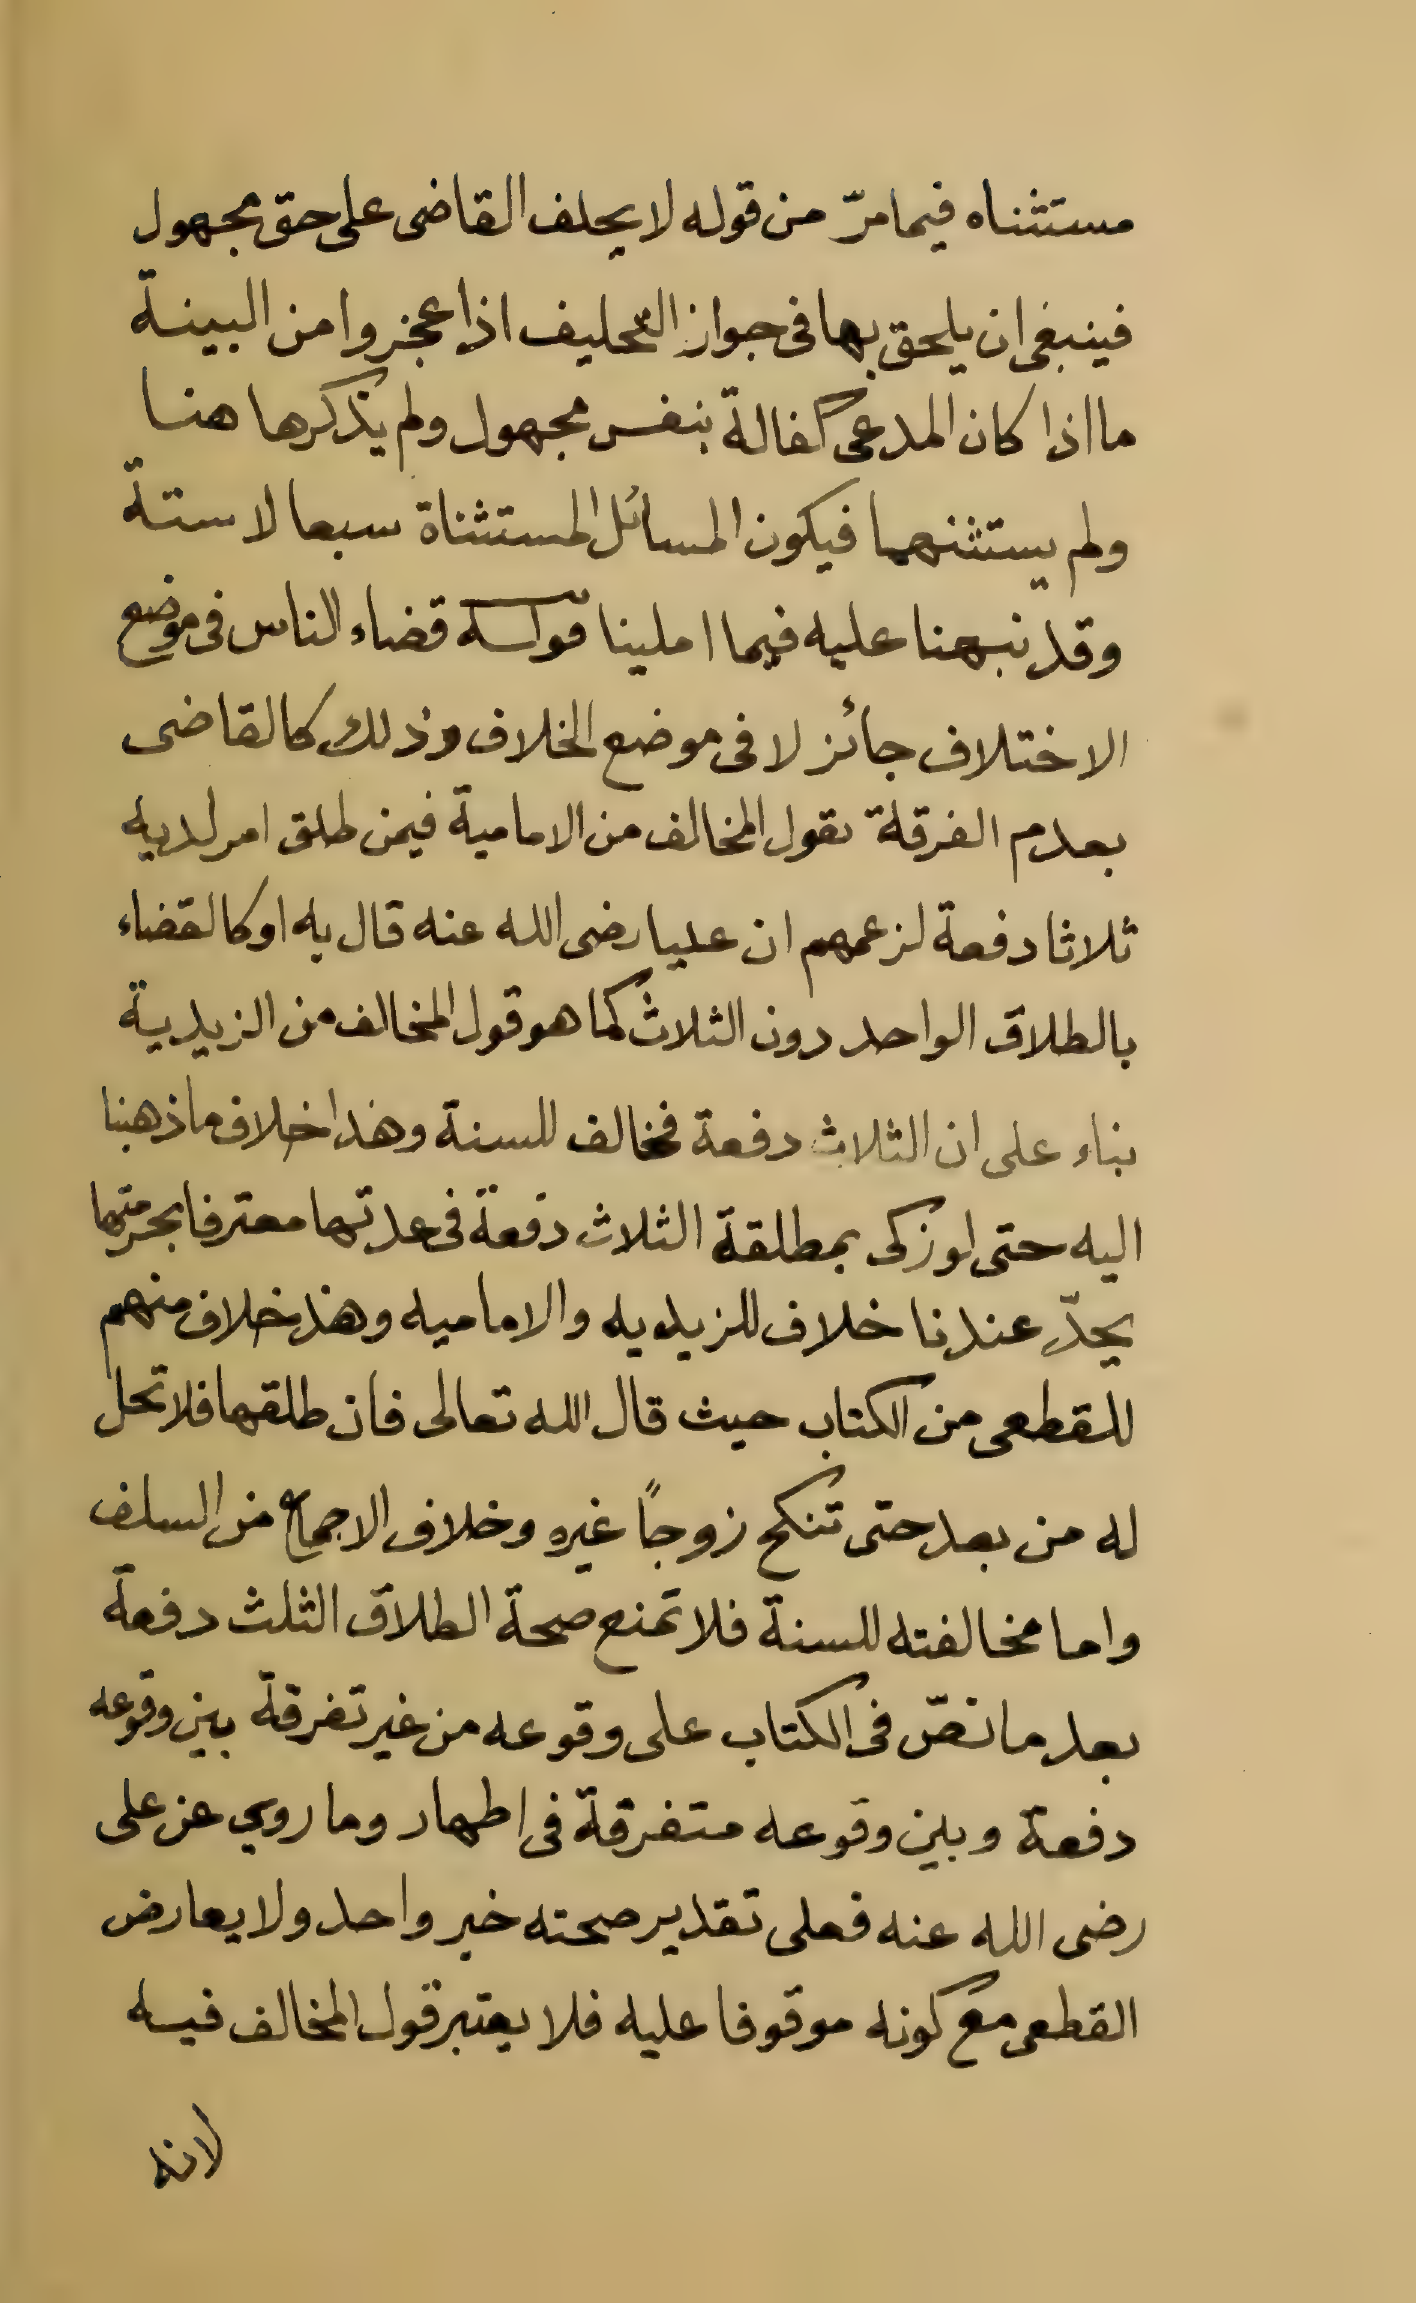 مستثناه فيما مرّ من قوله لا يحلف القاضى على حق مجهول
فينبغى ان يلحق بها فى جواز التحليف اذا عجزوا من البينة
ما اذا كان المدعى كفالة بنفس مجهول ولم يذكرها هنا
ولم يستثنهما فيكون المسائل المستثناة سبعا لا ستة
وقد نبهنا عليه فيما املينا قوله قضاء الناس فى موضع
الاختلاف جائز لا فى موضع الخلاف وذلك كالقاضى
بعدم الفرقة بقول المخالف من الامامية فيمن طلق
ثلاثا دفعة لزعمهم ان عليا رضى الله عنه قال به او كالقضاء
بالطلاق الواحد دون الثلاث كما هو قول المخالف من الزيدية
بناء على ان الثلاث دفعة فمخالف للسنة وهذا خلاف ما ذهبنا
اليه حتى لو زكى بمطلقة الثلاث دفعة فى عدتها معترفا بحرمتها
يحدّ عندنا خلاف للزيدويه والاماميه وهذ خلاف منهم
للقطعى من الكتاب حيث قال الله تعالى فان طلقها فلا تحل
له من بعد حتى تنكح زوجاً غيره وخلاف الاجماع من السلف
واما مخالفته للسنة فلا تمنع صحة الطلاق الثلث دفعة
بعد ما نصّ فى الكتاب على وقوعه من غير تفرقة بين وقوعه
دفعة وبين وقوعه متفرقة فى اطهار وما روي عن على
رضى الله عنه فعلى تقدير صحته خبر واحد ولا يعارض
القطعى مع كونه موقوفا عليه فلا يعتبر قول المخالف فيه
لانه